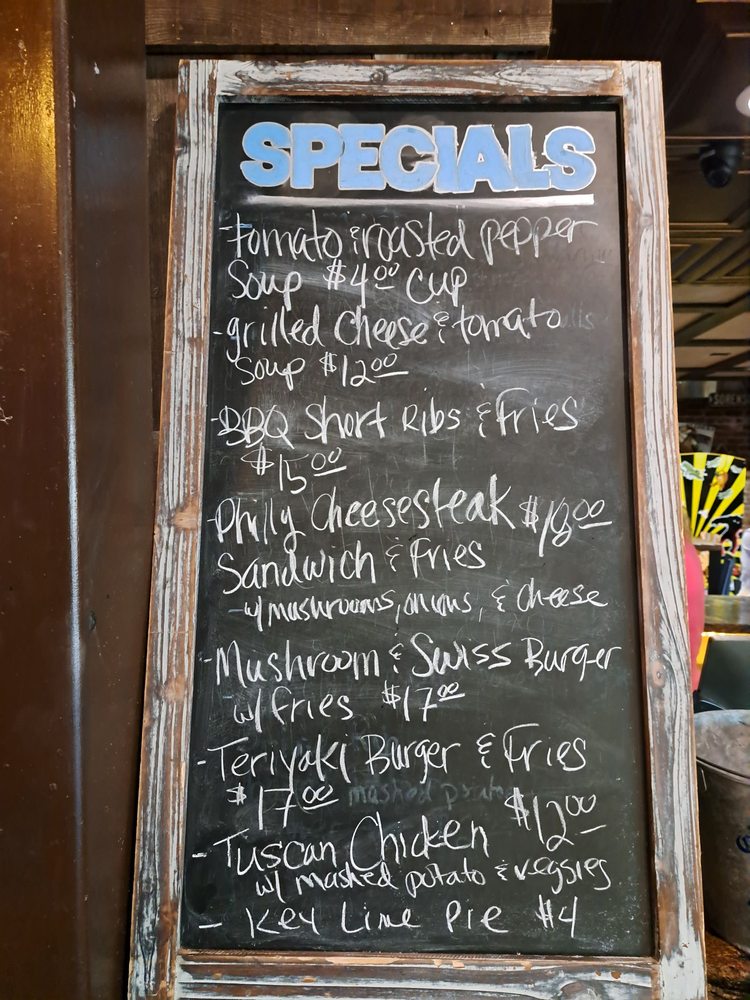 SPECIALS
- tomato & roasted pepper
Soup $4.00 cup
- grilled Cheese & tomato
Soup $12.00
- BBQ Short Ribs & Fries
$15.00
- Philly Cheesesteak $18.00
Sandwich & Fries
- w/ mushrooms, onions, & cheese
- Mushroom & Swiss Burger
w/ fries $17.00
- Teriyaki Burger & Fries
$17.00 mashed potato
- Tuscan Chicken $12.00
w/ mashed potato & veggies
- Key Lime Pie $4